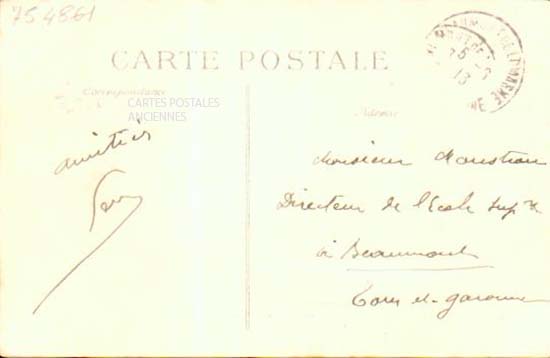 754861
CARTE POSTALE
Correspondance
CARTES POSTALES
ANCIENNES
Adresse
amitiés
Monsieur
Directeur de l'Ecole Supre
à Beaumont
Tarn et-garonne